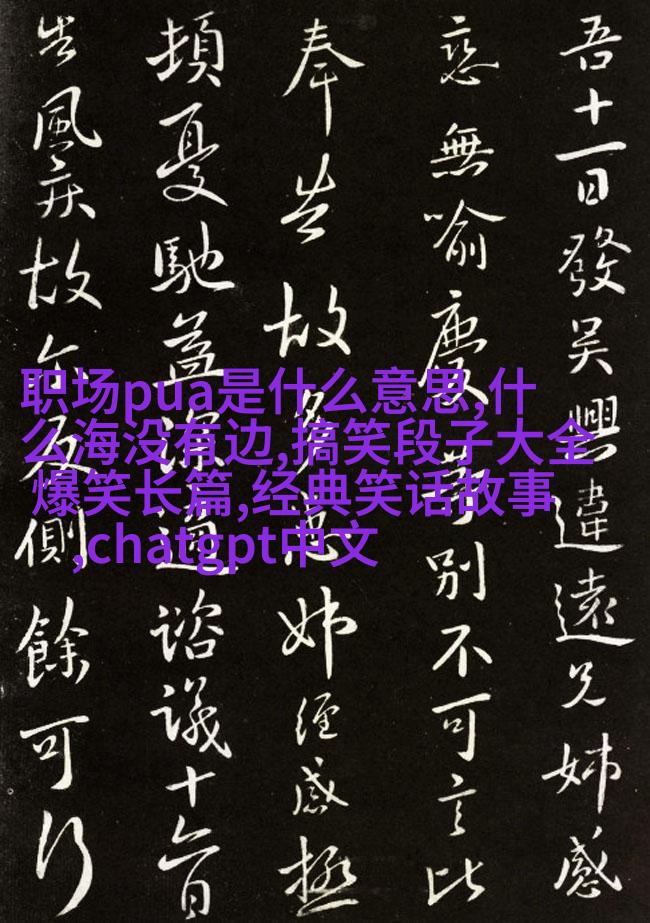 吾十一日發吳興違遠兄姊感
戀無喻慶等別不可言比
奉告故多患姊經感極
頓憂馳益深適諮議十六日
告風疾故反側餘可行
职场pua是什么意思,什
么海没有边,搞笑段子大全
爆笑长篇,经典笑话故事
,chatgpt中文